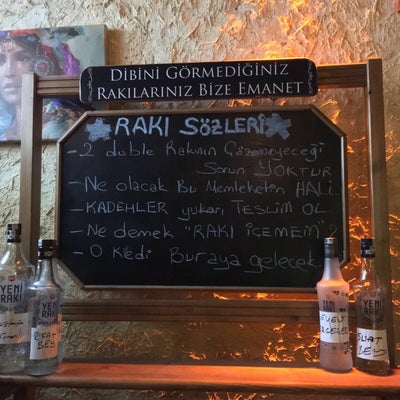 DİBİNİ GÖRMEDİĞİNİZ
RAKILARINIZ BİZE EMANET
RAKI SÖZLERİ
- 2 duble Rakının Çözemeyeceği
Sorun YOKTUR
- Ne olacak Bu Memleketin HALİ
- KADEHLER yukarı TESLİM OL
- Ne demek "RAKI İÇEMEM"?
- O Kedi Buraya gelecek
YENİ
RAKI
YENİ
RAKI
RIFAT
BEY
YENİ
RAKI
SUAT
BEY